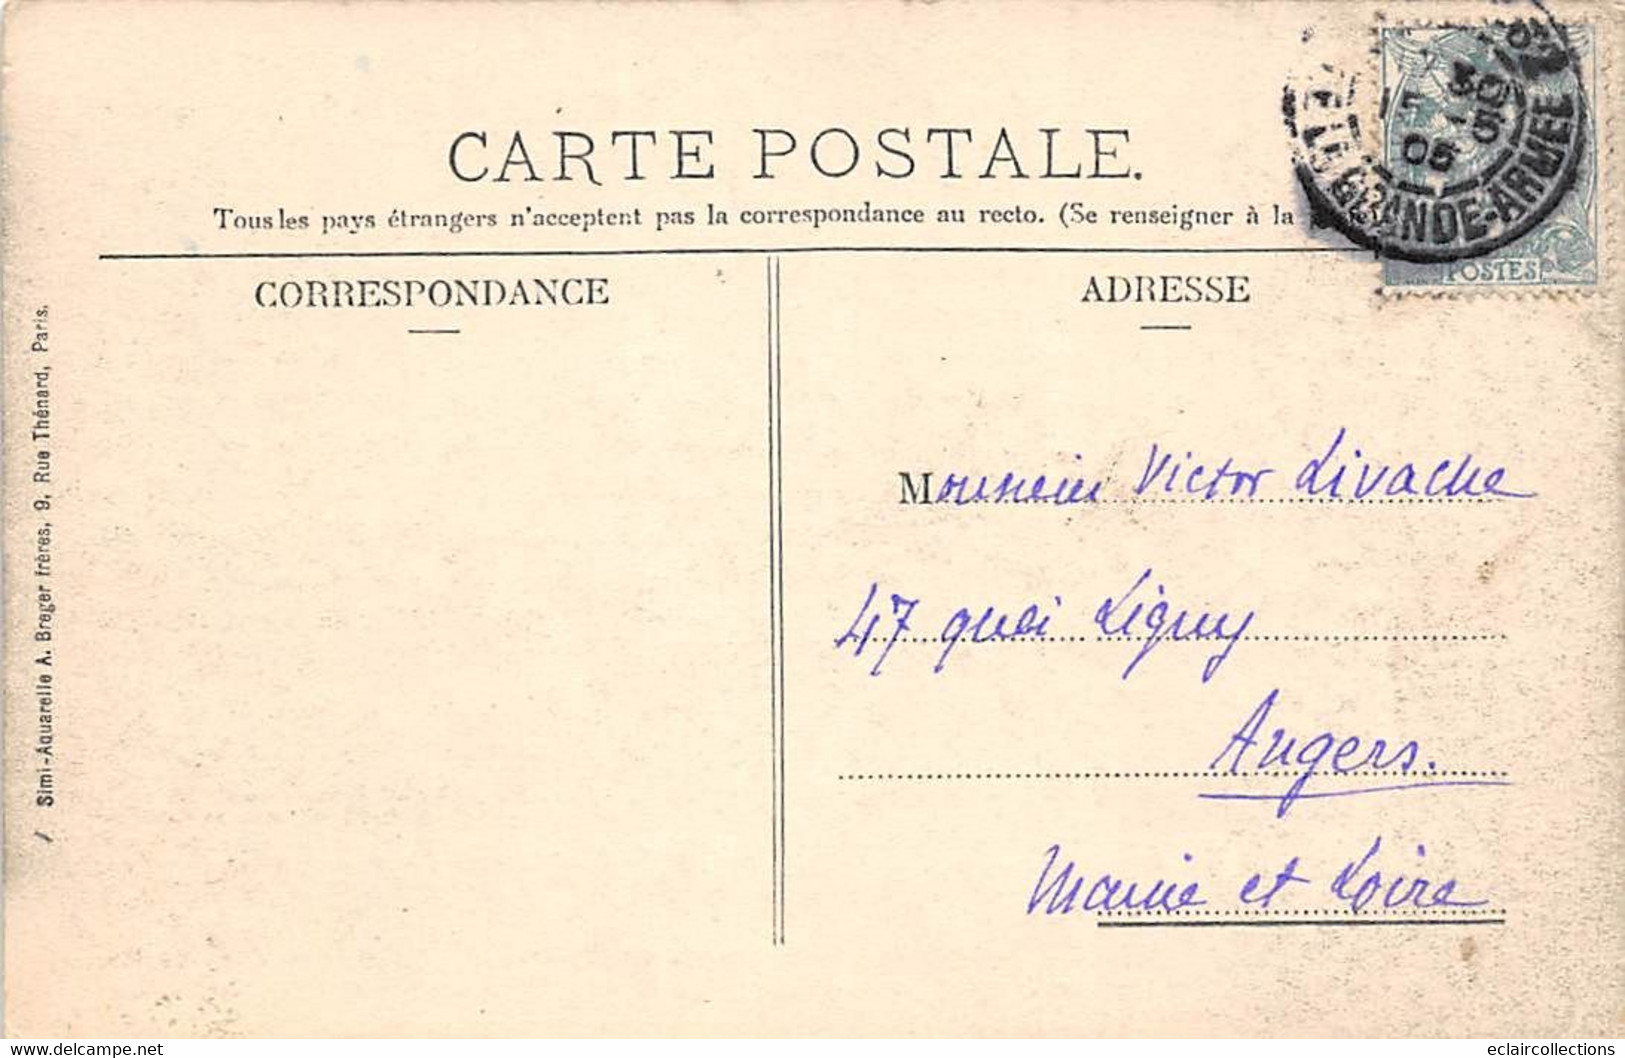 CARTE POSTALE.
Tous les pays étrangers n'acceptent pas la correspondance au recto. (Se renseigner à la
CORRESPONDANCE
ADRESSE
Monsieur Victor Livache
47 quai Ligny
Angers.
Maine et Loire
Simi-Aquarelle A. Breger frères, 9, Rue Thénard, Paris.
GRANDE-ARMEE
15 30
05
POSTES
www.delcampe.net
eclaircollections